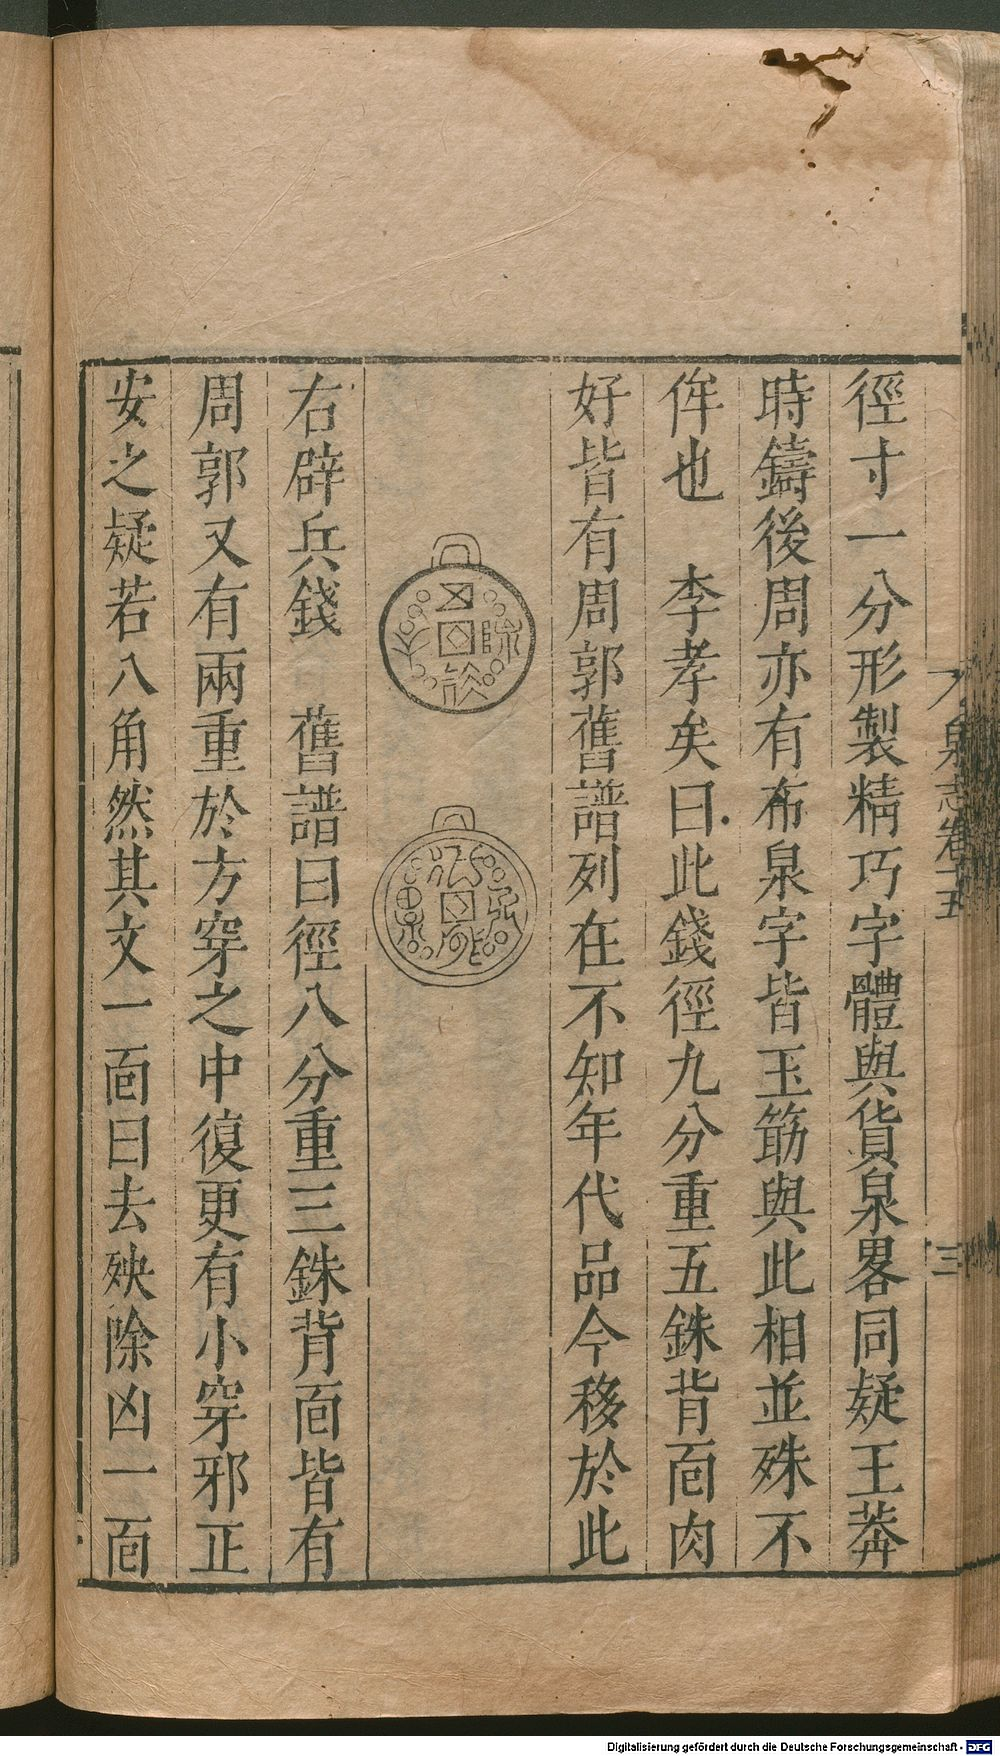 徑寸一分形製精巧字體與貨泉畧同疑王莽
時鑄後周亦有布泉字皆玉筯與此相並殊不
侔也　李孝矣曰此錢徑九分重五銖背面肉
好皆有周郭舊譜列在不知年代品今移於此
右辟兵錢　舊譜曰徑八分重三銖背面皆有
周郭又有兩重於方穿之中復更有小穿邪正
安之疑若八角然其文一面曰去殃除凶一面
泉志卷十五
三
Digitalisierung gefördert durch die Deutsche Forschungsgemeinschaft - DFG